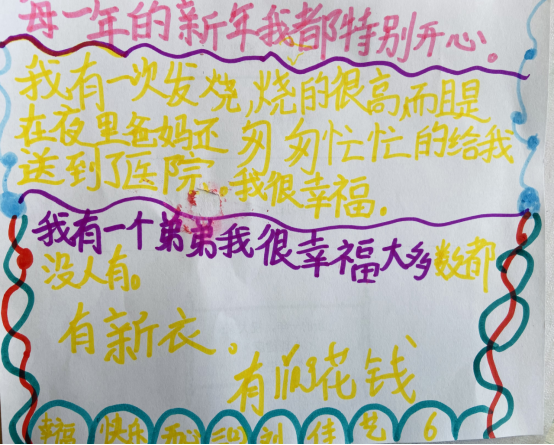 每一年的新年我都特别开心。
我有一次发烧,烧的很高,而且是
在夜里爸妈还匆匆忙忙的给我
送到了医院,我很幸福.
我有一个弟弟我很幸福大多数都
没人有。
有新衣。
有 花钱
幸福 快乐 刘佳艺 6